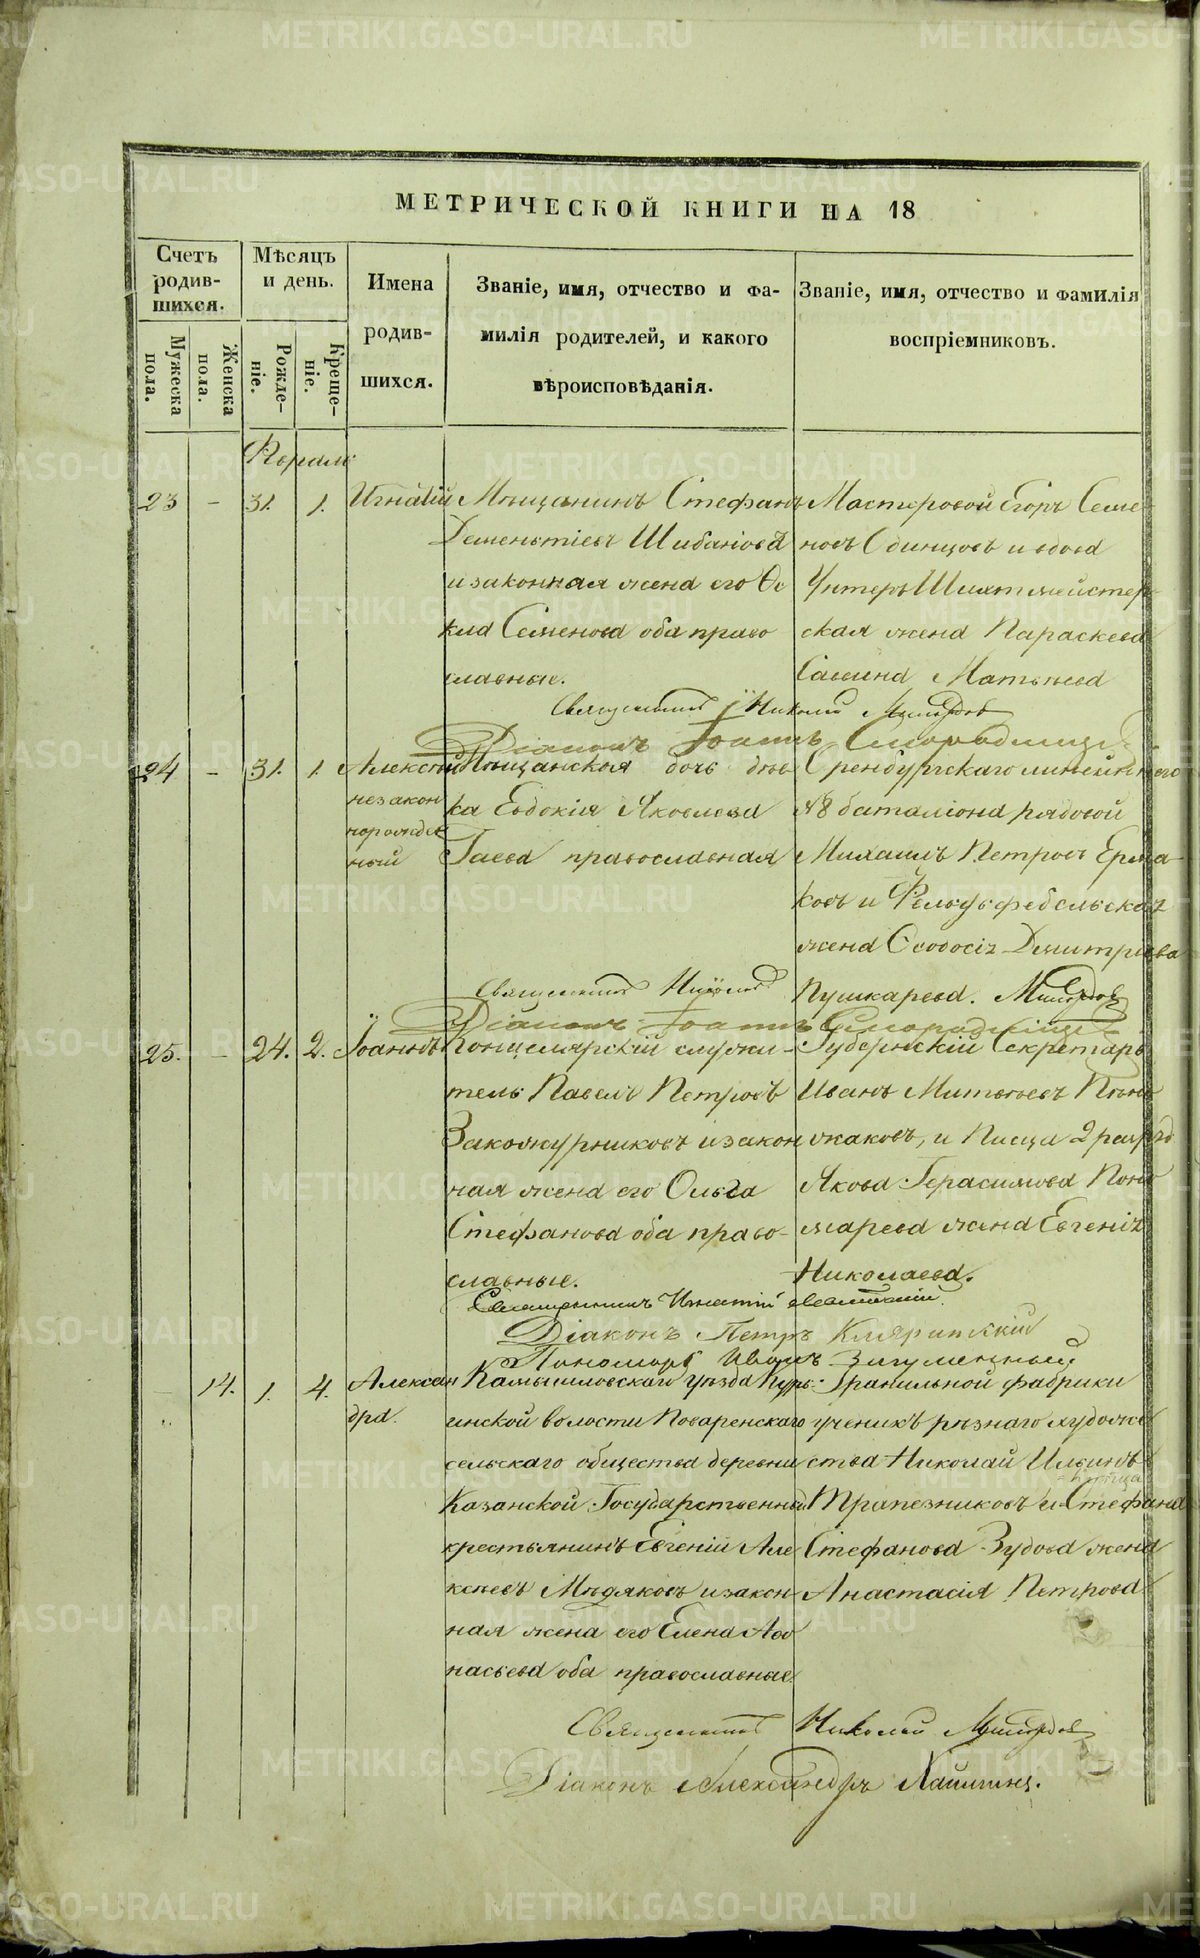 МЕТРИЧЕСКОЙ КНИГИ НА 18
Счетъ родив-шихся.
Мѣсяцъ и день.
Мужеска пола.
Женска пола.
Рожде-ніе.
Креще-ніе.
Имена
родив-
шихся.
Званіе, имя, отчество и фа-
милія родителей, и какого
вѣроисповѣданія.
Званіе, имя, отчество и фамилія
воспріемниковъ.
23 - 31. 1. Игнатій
Мѣщанинъ Стефанъ
Дементіевъ Шибановъ
и законная жена его Ѳе
кла Семенова оба право
славные.
Мастеровой Егоръ Семе
новъ Одинцовъ и вдова
Унтеръ Шихтмейстер
ская жена Параскева
Матвѣева
Священникъ Николай
Діаконъ Іоаннъ Смородинцевъ
24 - 31. 1. Алексѣй
незакон
норожден
ный
Мѣщанская дочь дѣв
ка Евдокія Яковлева
Гаева православная
Оренбургскаго линейнаго
№8 баталіона рядовой
Михаилъ Петровъ Ерма
ковъ и Фельдфебельская
жена Ѳеодосія Димитріева
Пушкарева.
Священникъ Николай
Діаконъ Іоаннъ Смородинцевъ
25. - 24. 2. Іоаннъ
Концелярскій служи-
тель Павелъ Петровъ
Закожурниковъ и закон
ная жена его Ольга
Стефанова оба право-
славные.
Губернскій Секретарь
Иванъ Матвѣевъ Пьян
жаковъ, и Писца 2 разряд
Якова Герасимова Поно
марева жена Евгенія
Николаева.
Священникъ Игнатій
Діаконъ Петръ
Пономарь Иванъ
14. 1. 4. Алексан
дра.
Камышловскаго уѣзда Курь-
инской волости Поваренскаго
сельскаго общества деревни
Казанской Государственный
крестьянинъ Евгеній Але
ксѣевъ Мѣдяковъ и закон-
ная жена его Елена Аѳо
насьева оба православные.
Гранильной фабрики
ученикъ рѣзнаго художе
ства Николай Ильинъ
Трапезниковъ и Стефана
Стефанова Зудова жена
Анастасія Петрова
Священникъ Николай
Діаконъ Александръ
METRIKI.GASO-URAL.RU